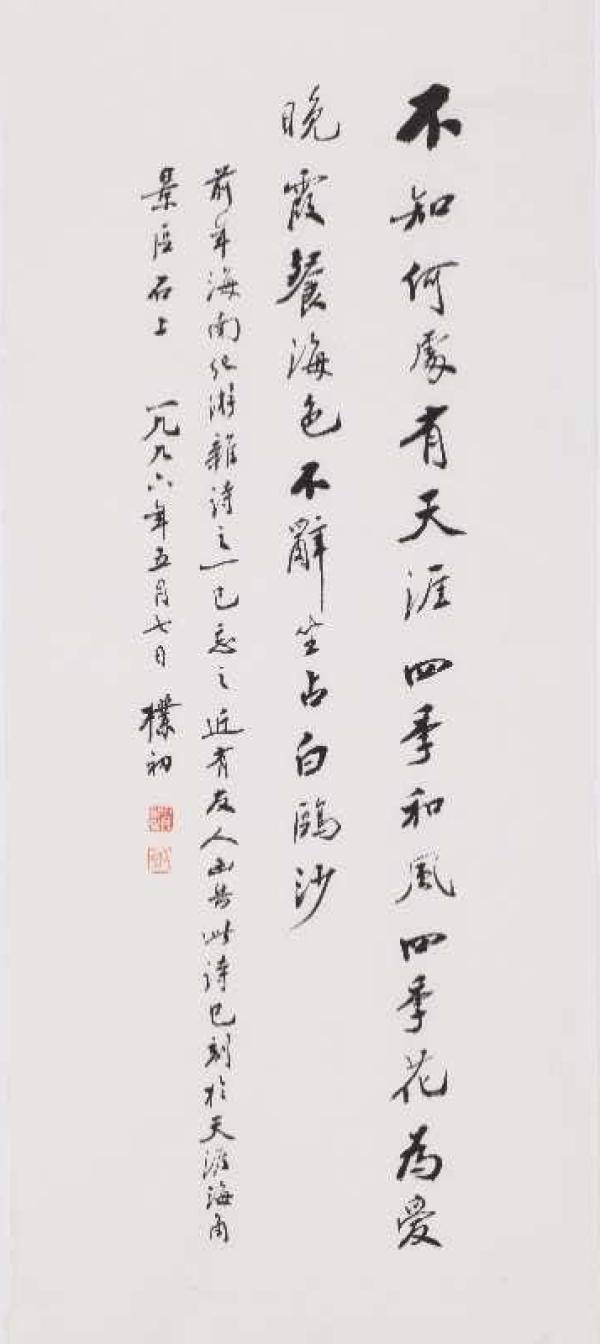 不知何處有天涯四季和風四季花為愛
晚霞餐海色不辭坐占白鷗沙
前年海南紀游雜詩之一已忘之近有友人函告此詩已刻於天涯海角
景區石上 一九九六年五月七日 樸初